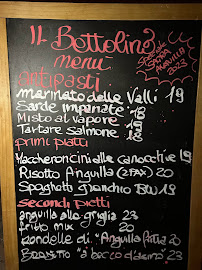 IL Bottolino
menu
SPECIALE SAGRA ANGUILLA 2023
antipasti
marinato delle Valli 19
Sarde impanate
Misto al vapore 18
Tartare Salmone
primi piatti
Maccheroncini alle canocchie 19
Risotto Anguilla (2PAX) 20
Spaghetti granchio BLU 19
secondi piatti
anguilla alla griglia 23
fritto mix 20
Rondelle di "Anguilla fritta 20
Brodetto "a becco d'asino" 23